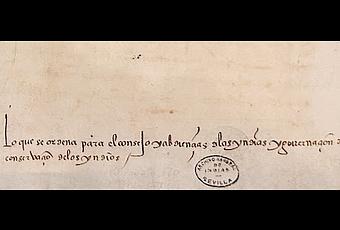 Lo que se ordena para el consejo y abdiençias de las yndias y governaçion e
conservaçion de los yndios
ARCHIVO GENERAL
DE
INDIAS
SEVILLA